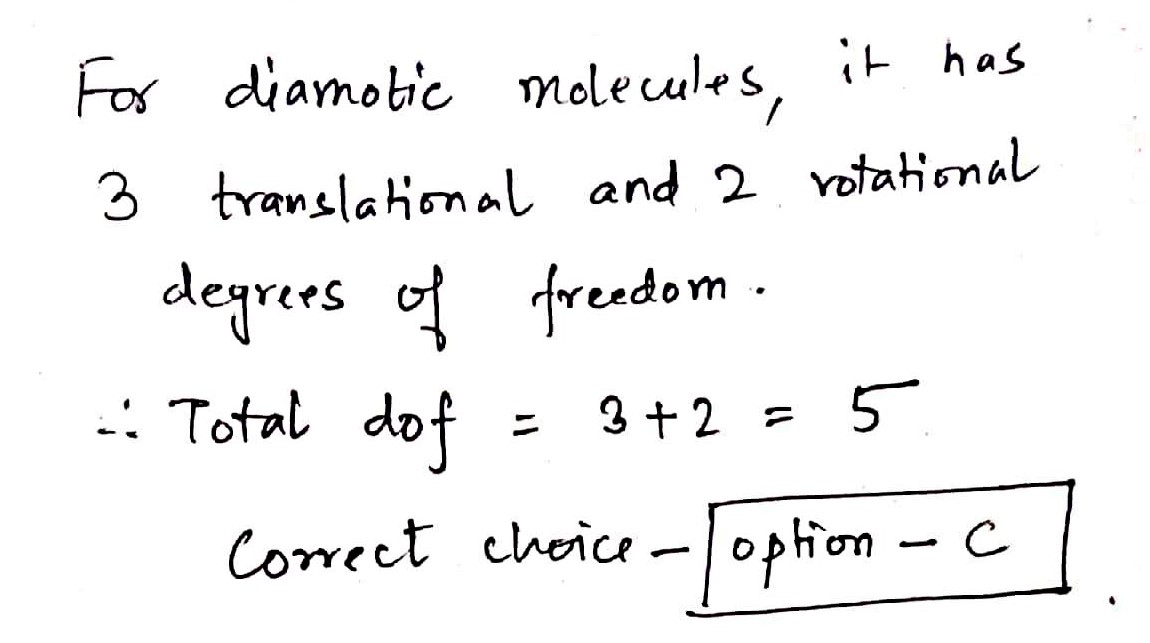 For diamotic molecules, it has
3 translational and 2 rotational
degrees of freedom.
∴ Total dof = 3+2 = 5
Correct choice - option - C.